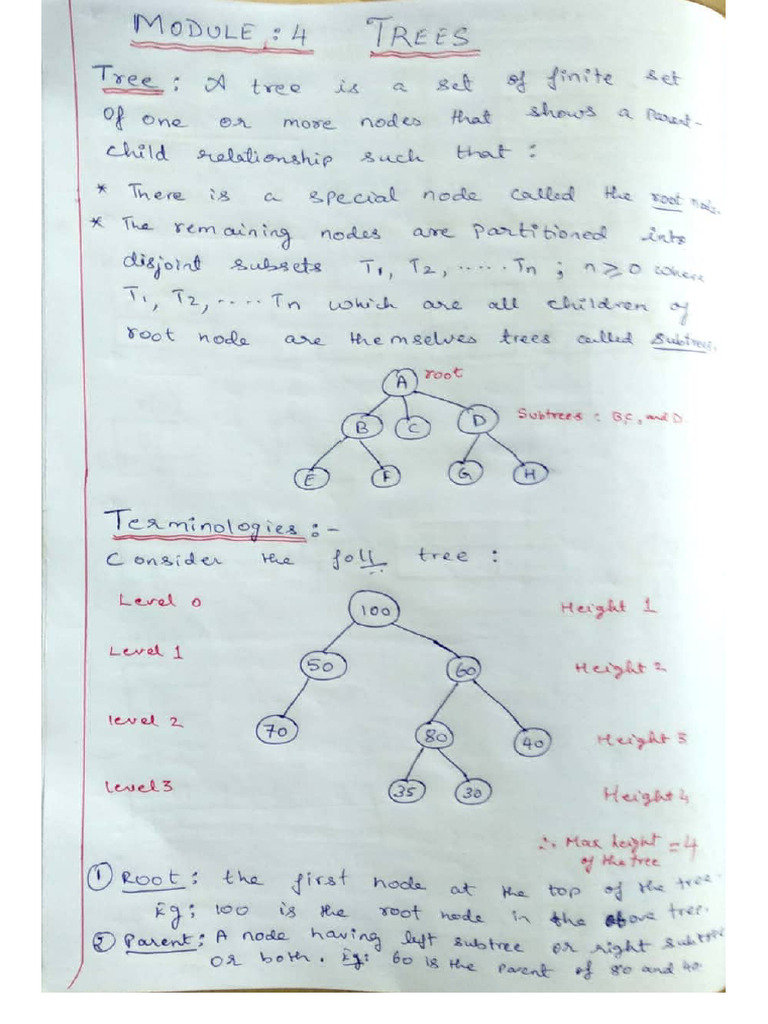 MODULE : 4 TREES
Tree : A tree is a set of finite set
of one or more nodes that shows a parent-
child relationship such that :
* There is a special node called the root node.
* The remaining nodes are partitioned into
disjoint subsets T1, T2, ..... Tn ; n ≥ 0 where
T1, T2, .... Tn which are all children of
root node are themselves trees called subtrees.
A root
B C D Subtrees : B, C, and D
E F G H
Terminologies :-
Consider the foll tree :
Level 0 100 Height 1
Level 1 50 60 Height 2
level 2 70 80 40 Height 3
Level 3 35 30 Height 4
∴ Max height = 4
of the tree
① Root : the first node at the top of the tree.
Eg: 100 is the root node in the above tree.
② Parent : A node having left subtree or right subtree
or both. Eg: 60 is the parent of 80 and 40